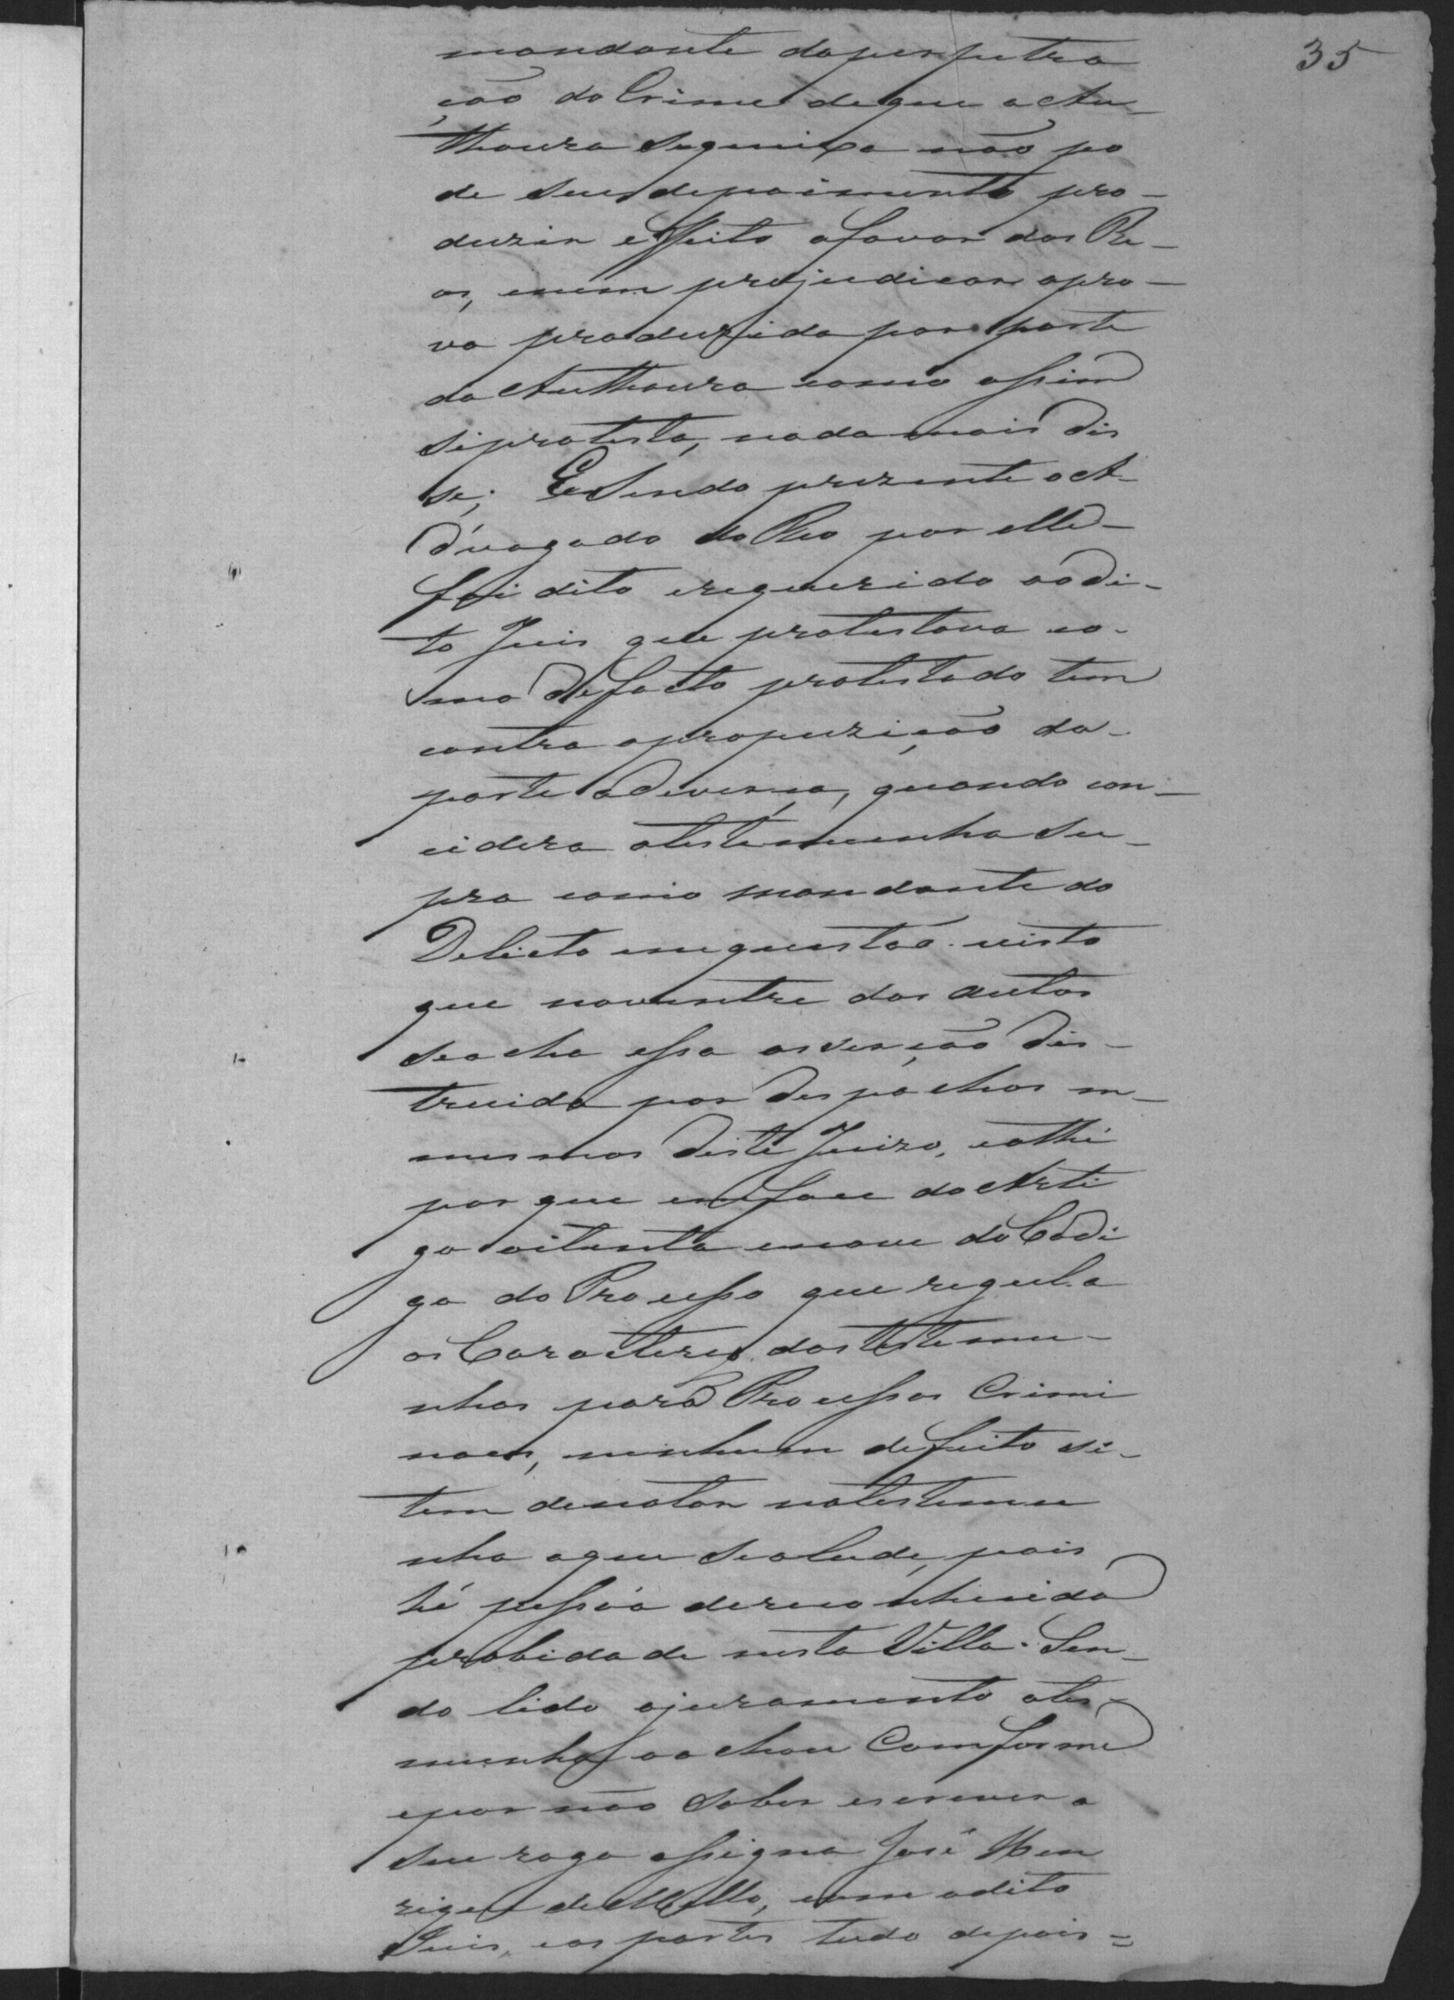 35
mandante da perpetra
ção do Crime de que a Au_
thoura se queixa não po
de seu depoimento pro_
duzir effeito a favor dos Re_
os, enem prejudicar apro_
va produzida por parte
da Authoura como assim
si protesta, nada mais dis
se; E sendo prezente o A_
dvogado do Reo por elle_
foi dito erequerido aodi_
to Juis que protestava co_
mo de facto protestado tem
contra apropuzição da_
parte adeverça, quando con_
cidera atestemunha su_
pra como mandante do
Delicto emquestão visto
que noventre dos autos
seacha essa aserção dis_
truida por despachos m_
mesmos deste Juizo, eathé
por que emface do Arti
go oitenta enove do Codi
go do Processo que regula
os Caracteres das testemu_
nhas para Processos Crimi
naes, nenhum defeito se_
tem denotar natestemu
nha aque sealude, pois
hé pessôa dereconhecida
probidade nesta Villa. Sen_
do lido ojuramento ates_
munha oachou Comforme
epor não saber escrever a
seu rogo assigna José Hen
riques de Mello, com odito
Juis, eas partes tudo depois=